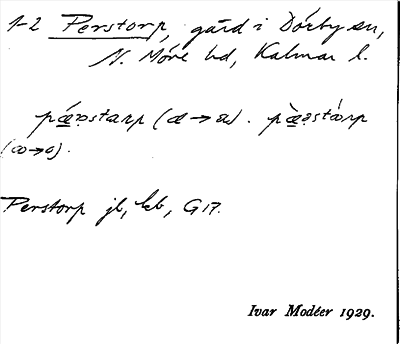 1-2 Perstorp, gård i Dörby sn,
N. Möre hd, Kalmar l.
pǽəstarp (a→ɑ). pæ̀əstárp
(a→ɑ).
Perstorp jb, kb, G 17.
Ivar Modéer 1929.